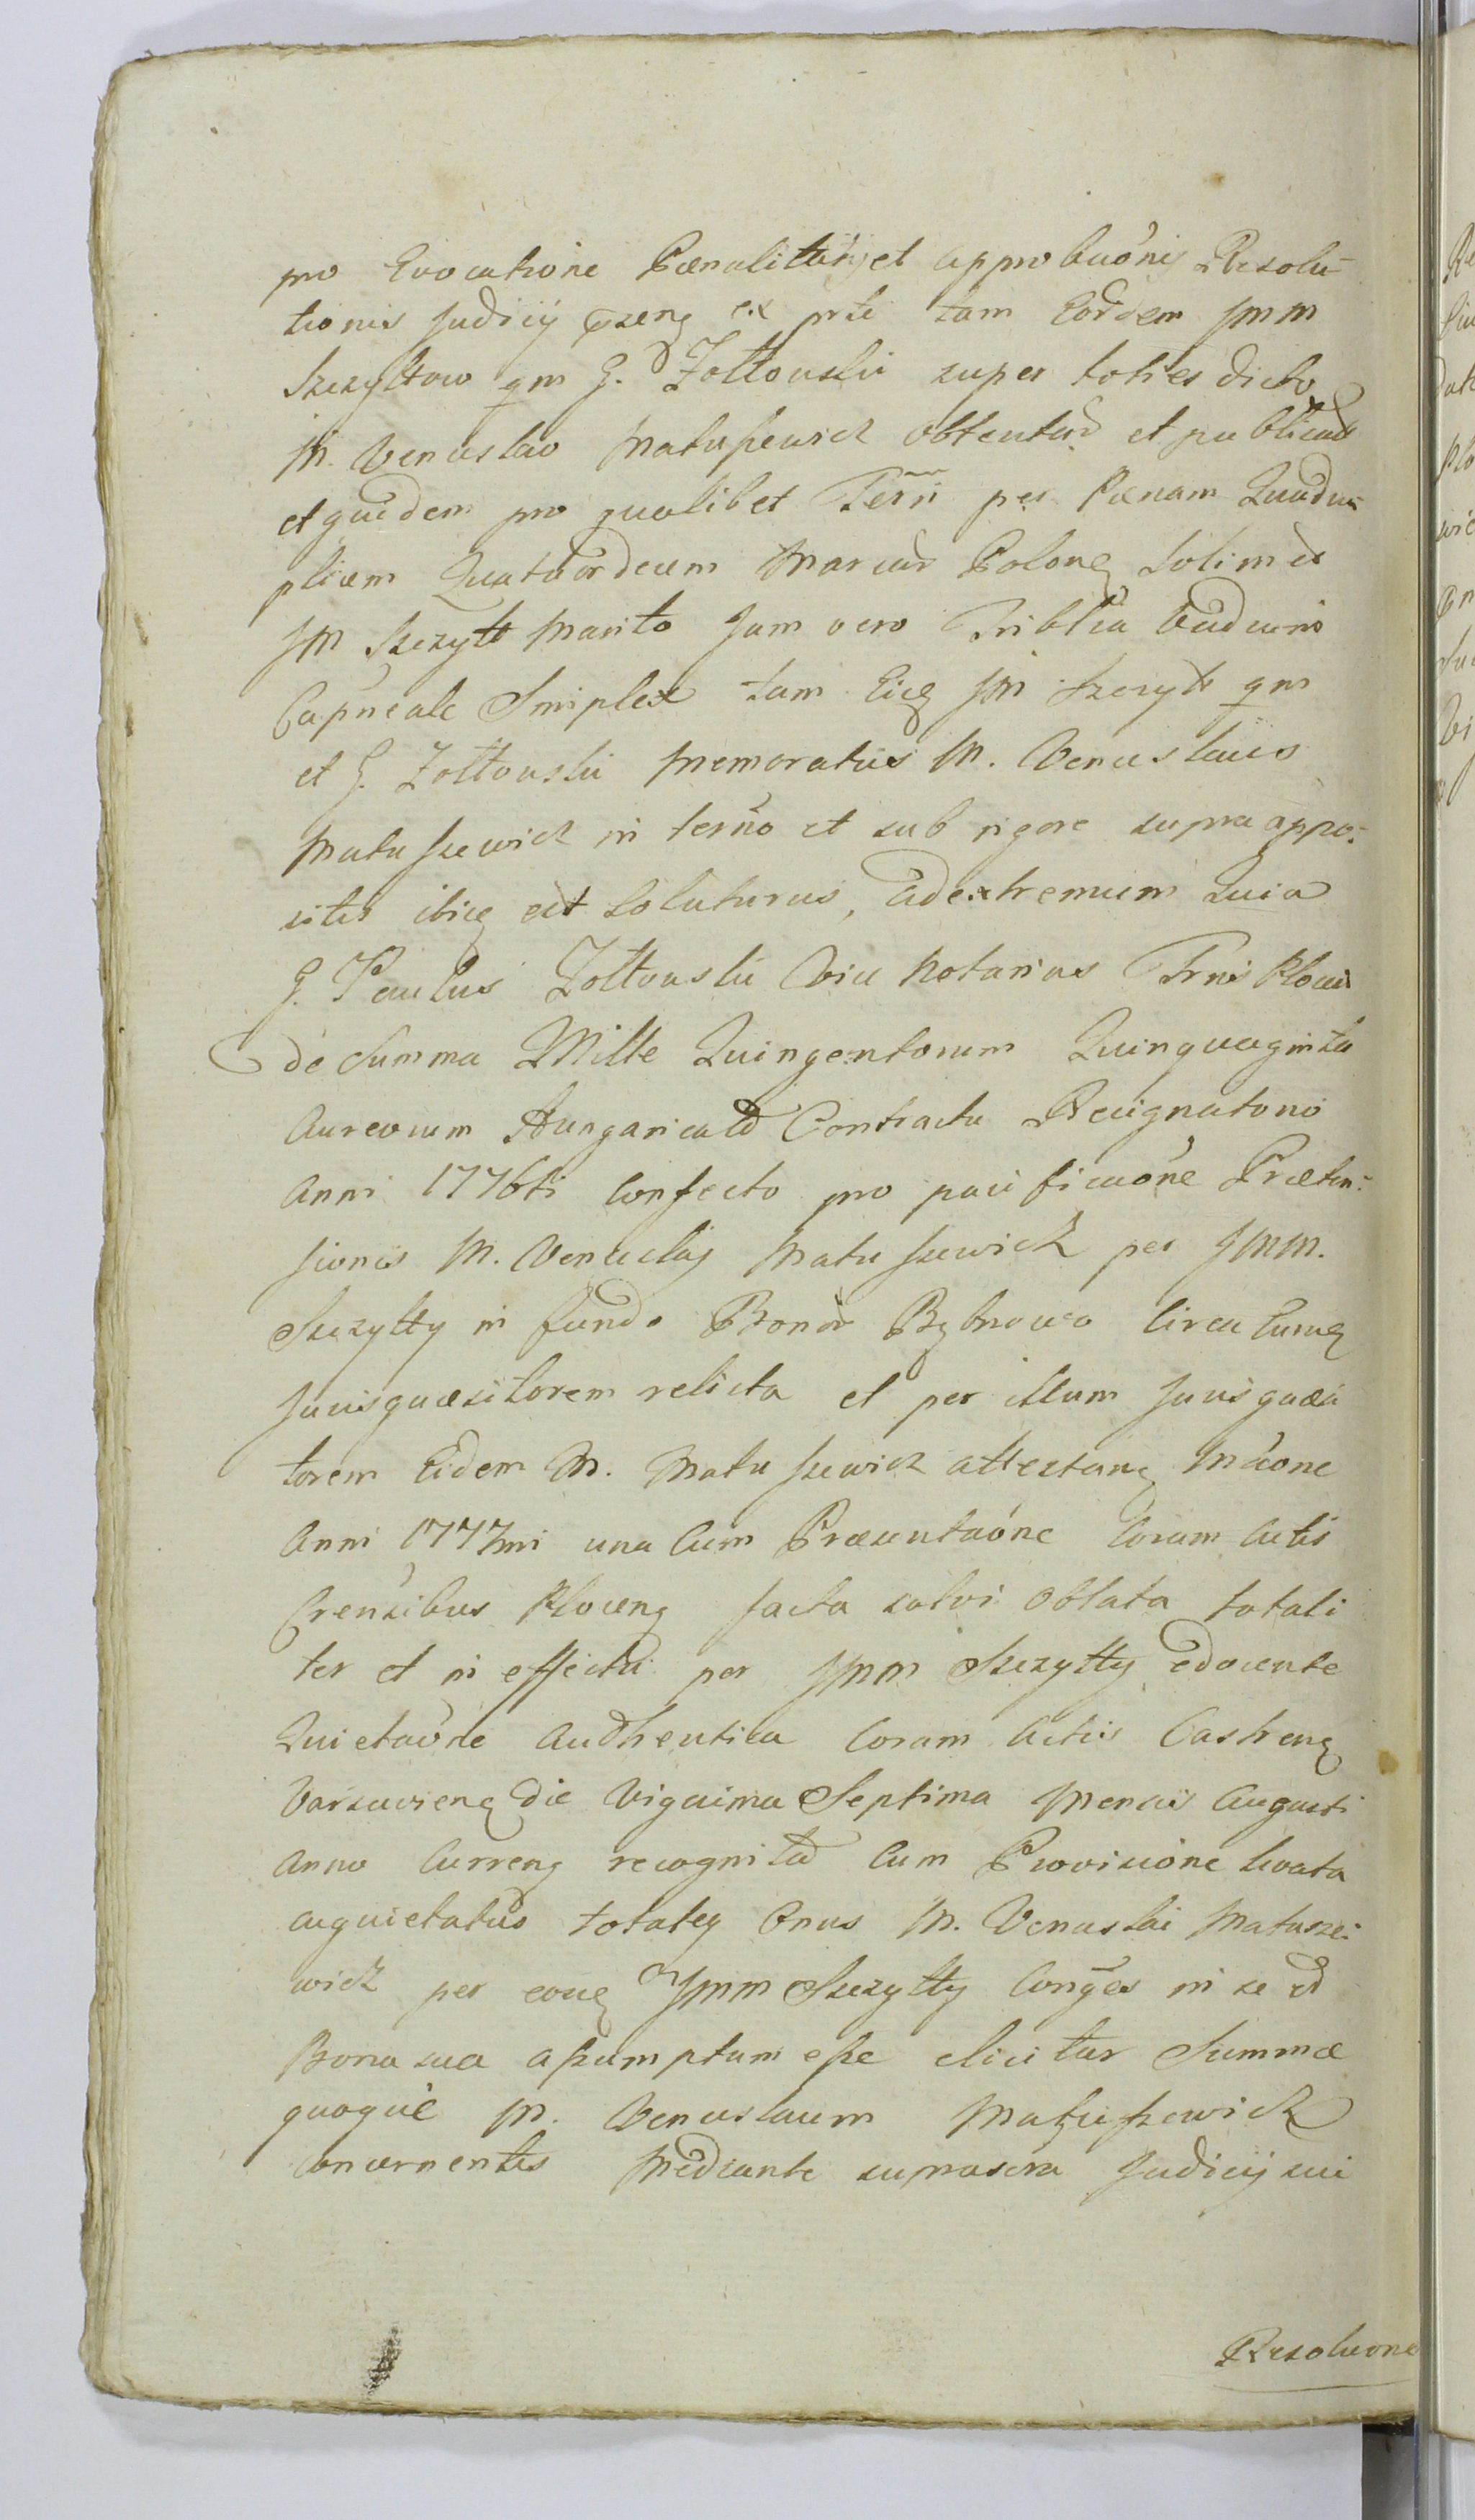 pro Evocatione Pœnalitatis et approbaōnis Resolu-
tionis Judicij ex prte tam Eordem JMM
Szczyttow qm G. Zołtowski super toties dicto
M. Venceslao Matuszewicz obtentar et publicat
et quidem pro qualibet Terñ per Pœnam Quadru-
plicem Quatuordecem Marcar Polonę solim
JM Szczytt Marito Jam vero
Simplex tam JM Szczytt qm
et G. Zołtowski memoratus M. Venceslaus
Matuszewicz in termō et sub rigore supra appo-
sitis ibiq est soluturus, ad extremum Quia
G. Paulus Zołtowski Vice Notarius Trnis Plocen
de Summa Mille Quingentorum Quinquaginta
Aureorum Hungaricald Contractu Resignatorio
Anni 1776ti confecto pro pacificaōne Præten-
sionis M. Venceslaj Matuszewicz per JMM.
Szczytty in fundo Bonor Bębnowo circa Eumq
Jurisquæsitorem relicta et per illum Jurisquæsi
torem Eidem M. Matuszewicz attestanę Mãone
Anni 1777mi una cum Præsentaōne Coram Actis
Crensibus Plocenę facta salvi oblata totali
ter et in effectu per JMM Szczytty edocente
Quietaōne Authentica Coram Actis Castrenę
Varsavienę die Vigesima Septima Mensis Augusti
Anno Currenę recognitad cum Provisione levata
acquietatus totaleq Onus M. Venceslai Matusze-
wicz per eosq JMM Szczytty Conges in se et
Bona sua assumptum esse elicitur Summæ
quoque M. Venceslaum Matuszewicz
concernentes Mediante suprascra Judicij sui
Resolucone